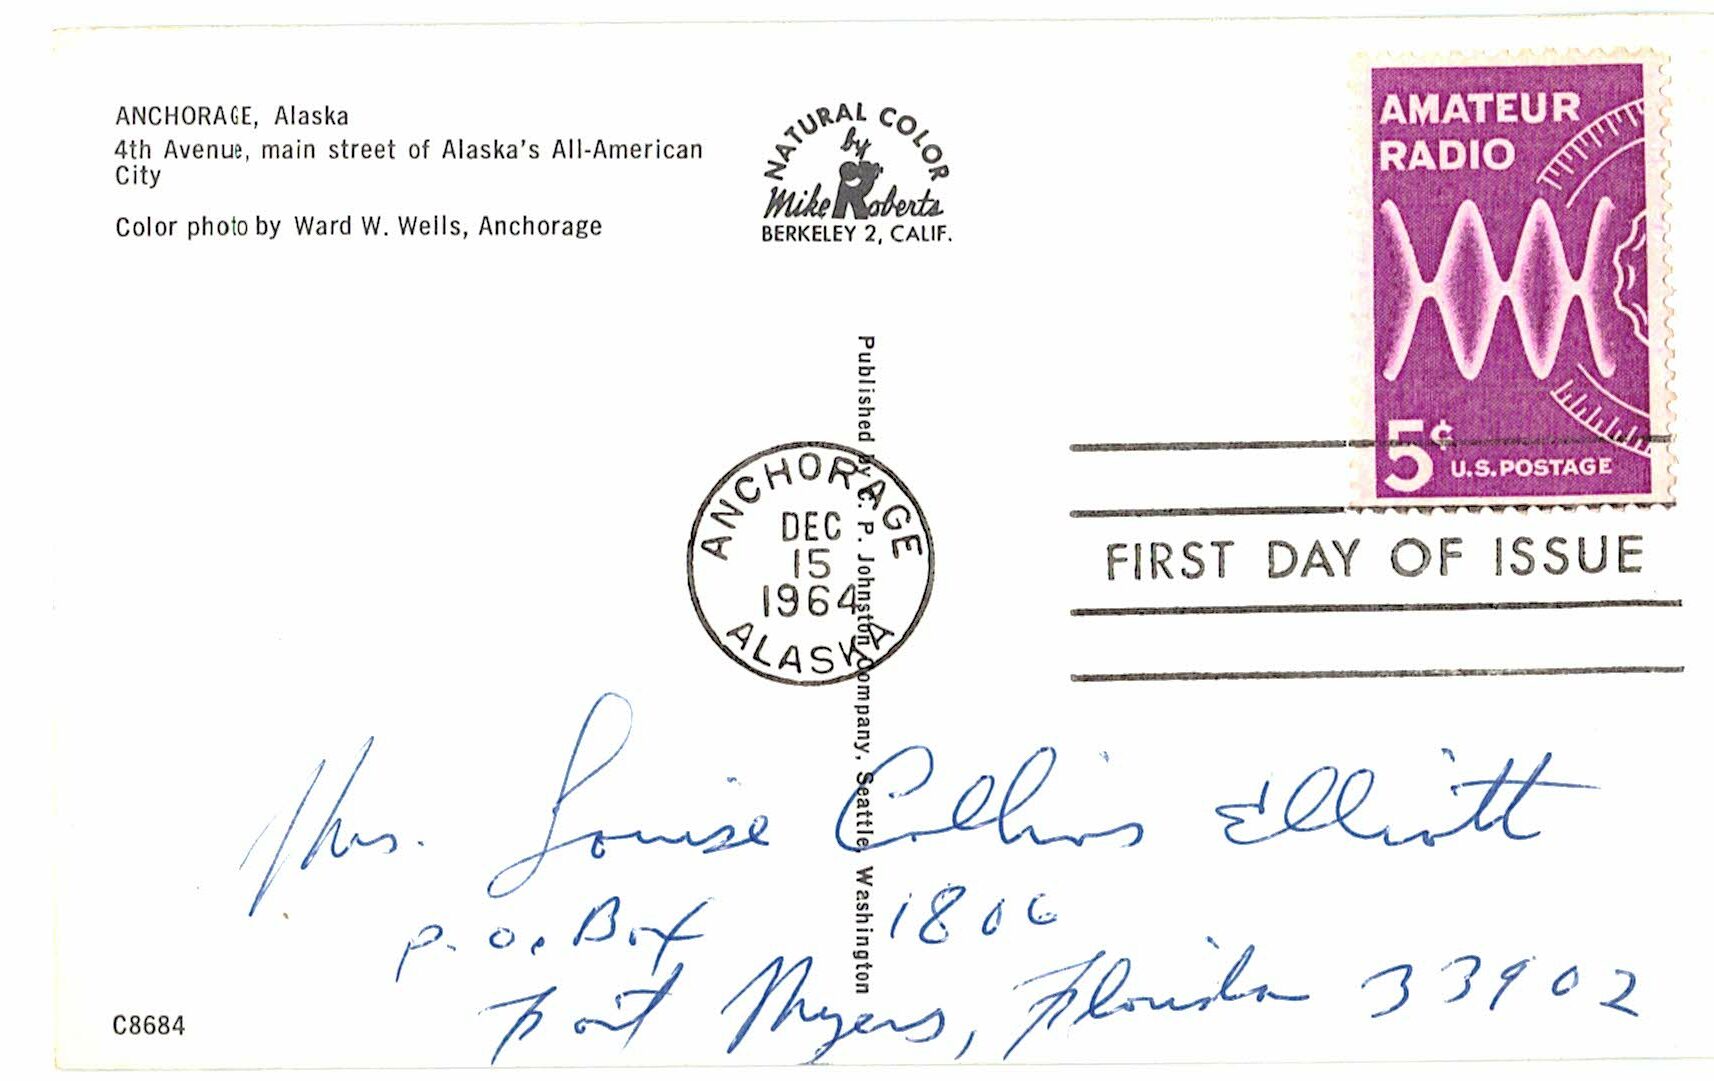 ANCHORAGE, Alaska
4th Avenue, main street of Alaska's All-American
City
Color photo by Ward W. Wells, Anchorage
NATURAL COLOR
by
Mike Roberts
BERKELEY 2, CALIF.
AMATEUR
RADIO
5¢
U.S. POSTAGE
Published by C. P. Johnston Company, Seattle, Washington
ANCHORAGE
DEC
15
1964
ALASKA
FIRST DAY OF ISSUE
Mrs. Louise Collins Elliott
P. O. Box 1806
Fort Myers, Florida 33902
C8684